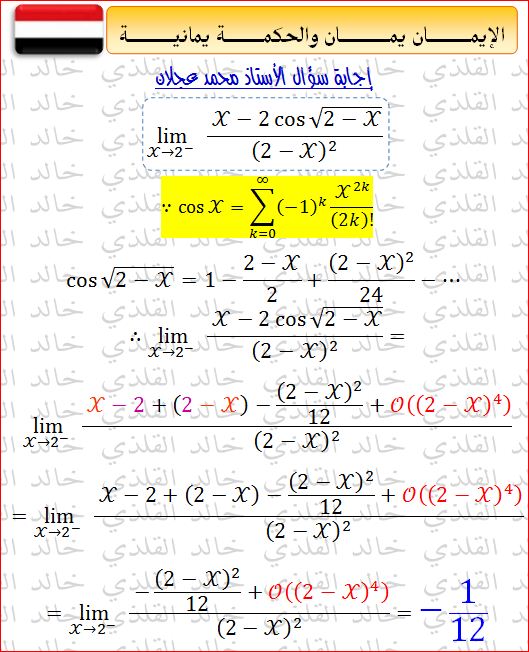 الإيمـــان يمـــان والحكمـــة يمانيـــة
إجابة سؤال الأستاذ محمد عجلان
lim x→2⁻ (x − 2 cos √(2 − x)) / (2 − x)²
∵ cos x = ∑_{k=0}^{∞} (−1)^k x^{2k} / (2k)!
cos √(2 − x) = 1 − (2 − x)/2 + (2 − x)²/24 − ⋯
∴ lim x→2⁻ (x − 2 cos √(2 − x)) / (2 − x)² =
lim x→2⁻ (x − 2 + (2 − x) − (2 − x)²/12 + O((2 − x)⁴)) / (2 − x)²
= lim x→2⁻ (x − 2 + (2 − x) − (2 − x)²/12 + O((2 − x)⁴)) / (2 − x)²
= lim x→2⁻ (−(2 − x)²/12 + O((2 − x)⁴)) / (2 − x)² = − 1/12
خالد القلذي